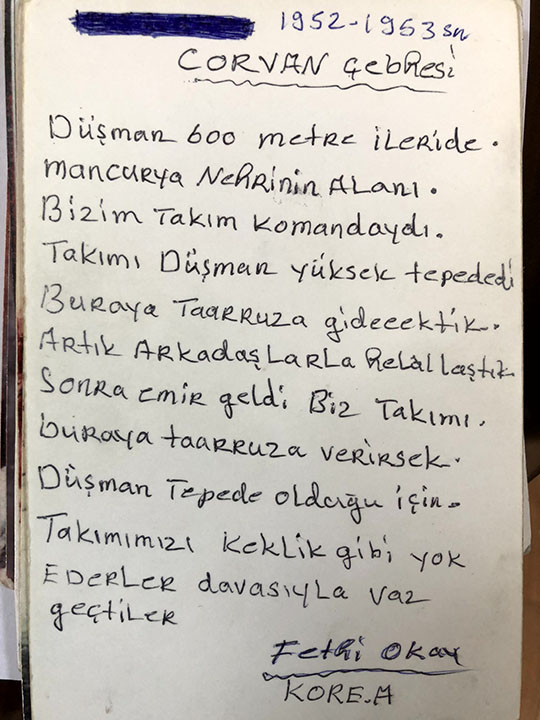 1952-1953 sn
CORVAN Çebhesi
Düşman 600 metre ileride.
mancurya Nehrinin Alanı.
Bizim Takım komandaydı.
Takımı Düşman yüksek tepededi
Buraya Taarruza gideeektik.
Artık Arkadaşlarla helallaştık
Sonra emir geldi Biz Takımı.
buraya taarruza verirsek.
Düşman Tepede olduğu için.
Takımımızı keklik gibi yok
Ederler davasıyla vaz
geçtiler
Fethi Okay
KORE.A